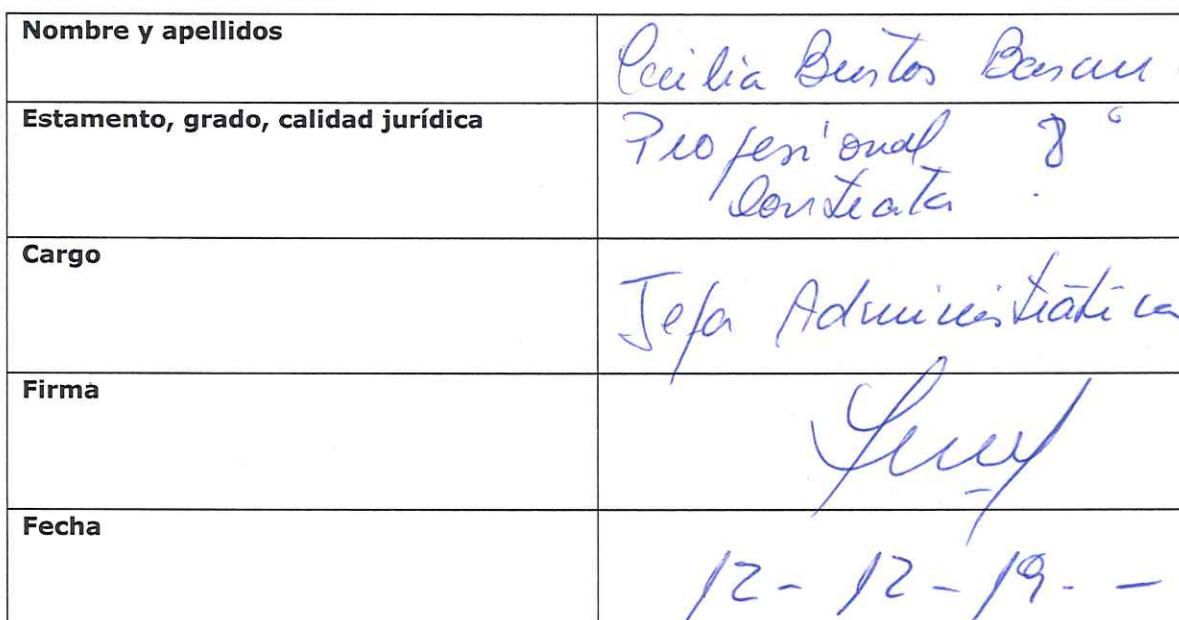 Nombre y apellidos
Cecilia Bustos
Estamento, grado, calidad jurídica
Profesional 8°
Contrata
Cargo
Jefa Administrativa
Firma
Fecha
12-12-19.-